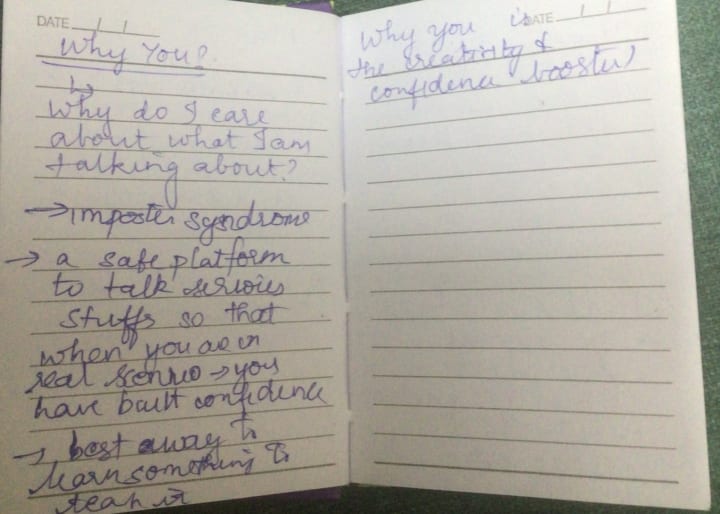 DATE / /
Why You?
↳
Why do I care
about what I am
talking about?
→ imposter syndrome
→ a safe platform
to talk serious
stuffs so that
when you are in
real → you
have built confidence
→ best away to
learn something to
teah it
DATE / /
Why you is
the creativity &
confidence booster